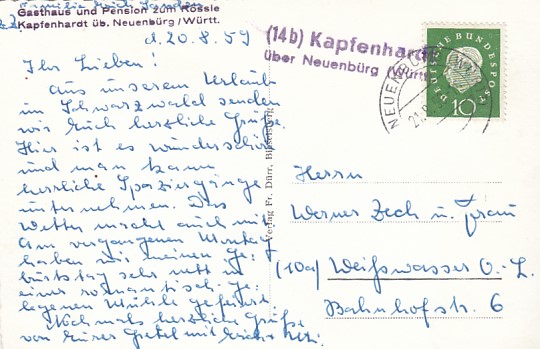 Gasthaus und Pension zum Rössle
Kapfenhardt üb. Neuenbürg/Württ.
d. 20.8.59
Ihr Lieben!
Aus unserem Urlaub
im Schwarzwald senden
wir Euch herzliche Grüße.
Hier ist es wunderschön
und man kann
herrliche Spaziergänge
unternehmen. Das
Wetter macht auch mit
Am vergangenen Montag
haben wir meinen Ge-
burtstag sehr nett in
einer romantisch ge-
legenen Mühle gefeiert.
Nochmals herzliche Grüße
von Eurer Gretel mit
Verlag Fr. Dürr,
(14b) Kapfenhardt
über Neuenbürg (Württ
NEUENBÜRG
21.
DEUTSCHE BUNDESPOST
10
Herrn
Werner Zech u. Frau
(10a) Weißwasser O.-L.
Bahnhofstr. 6